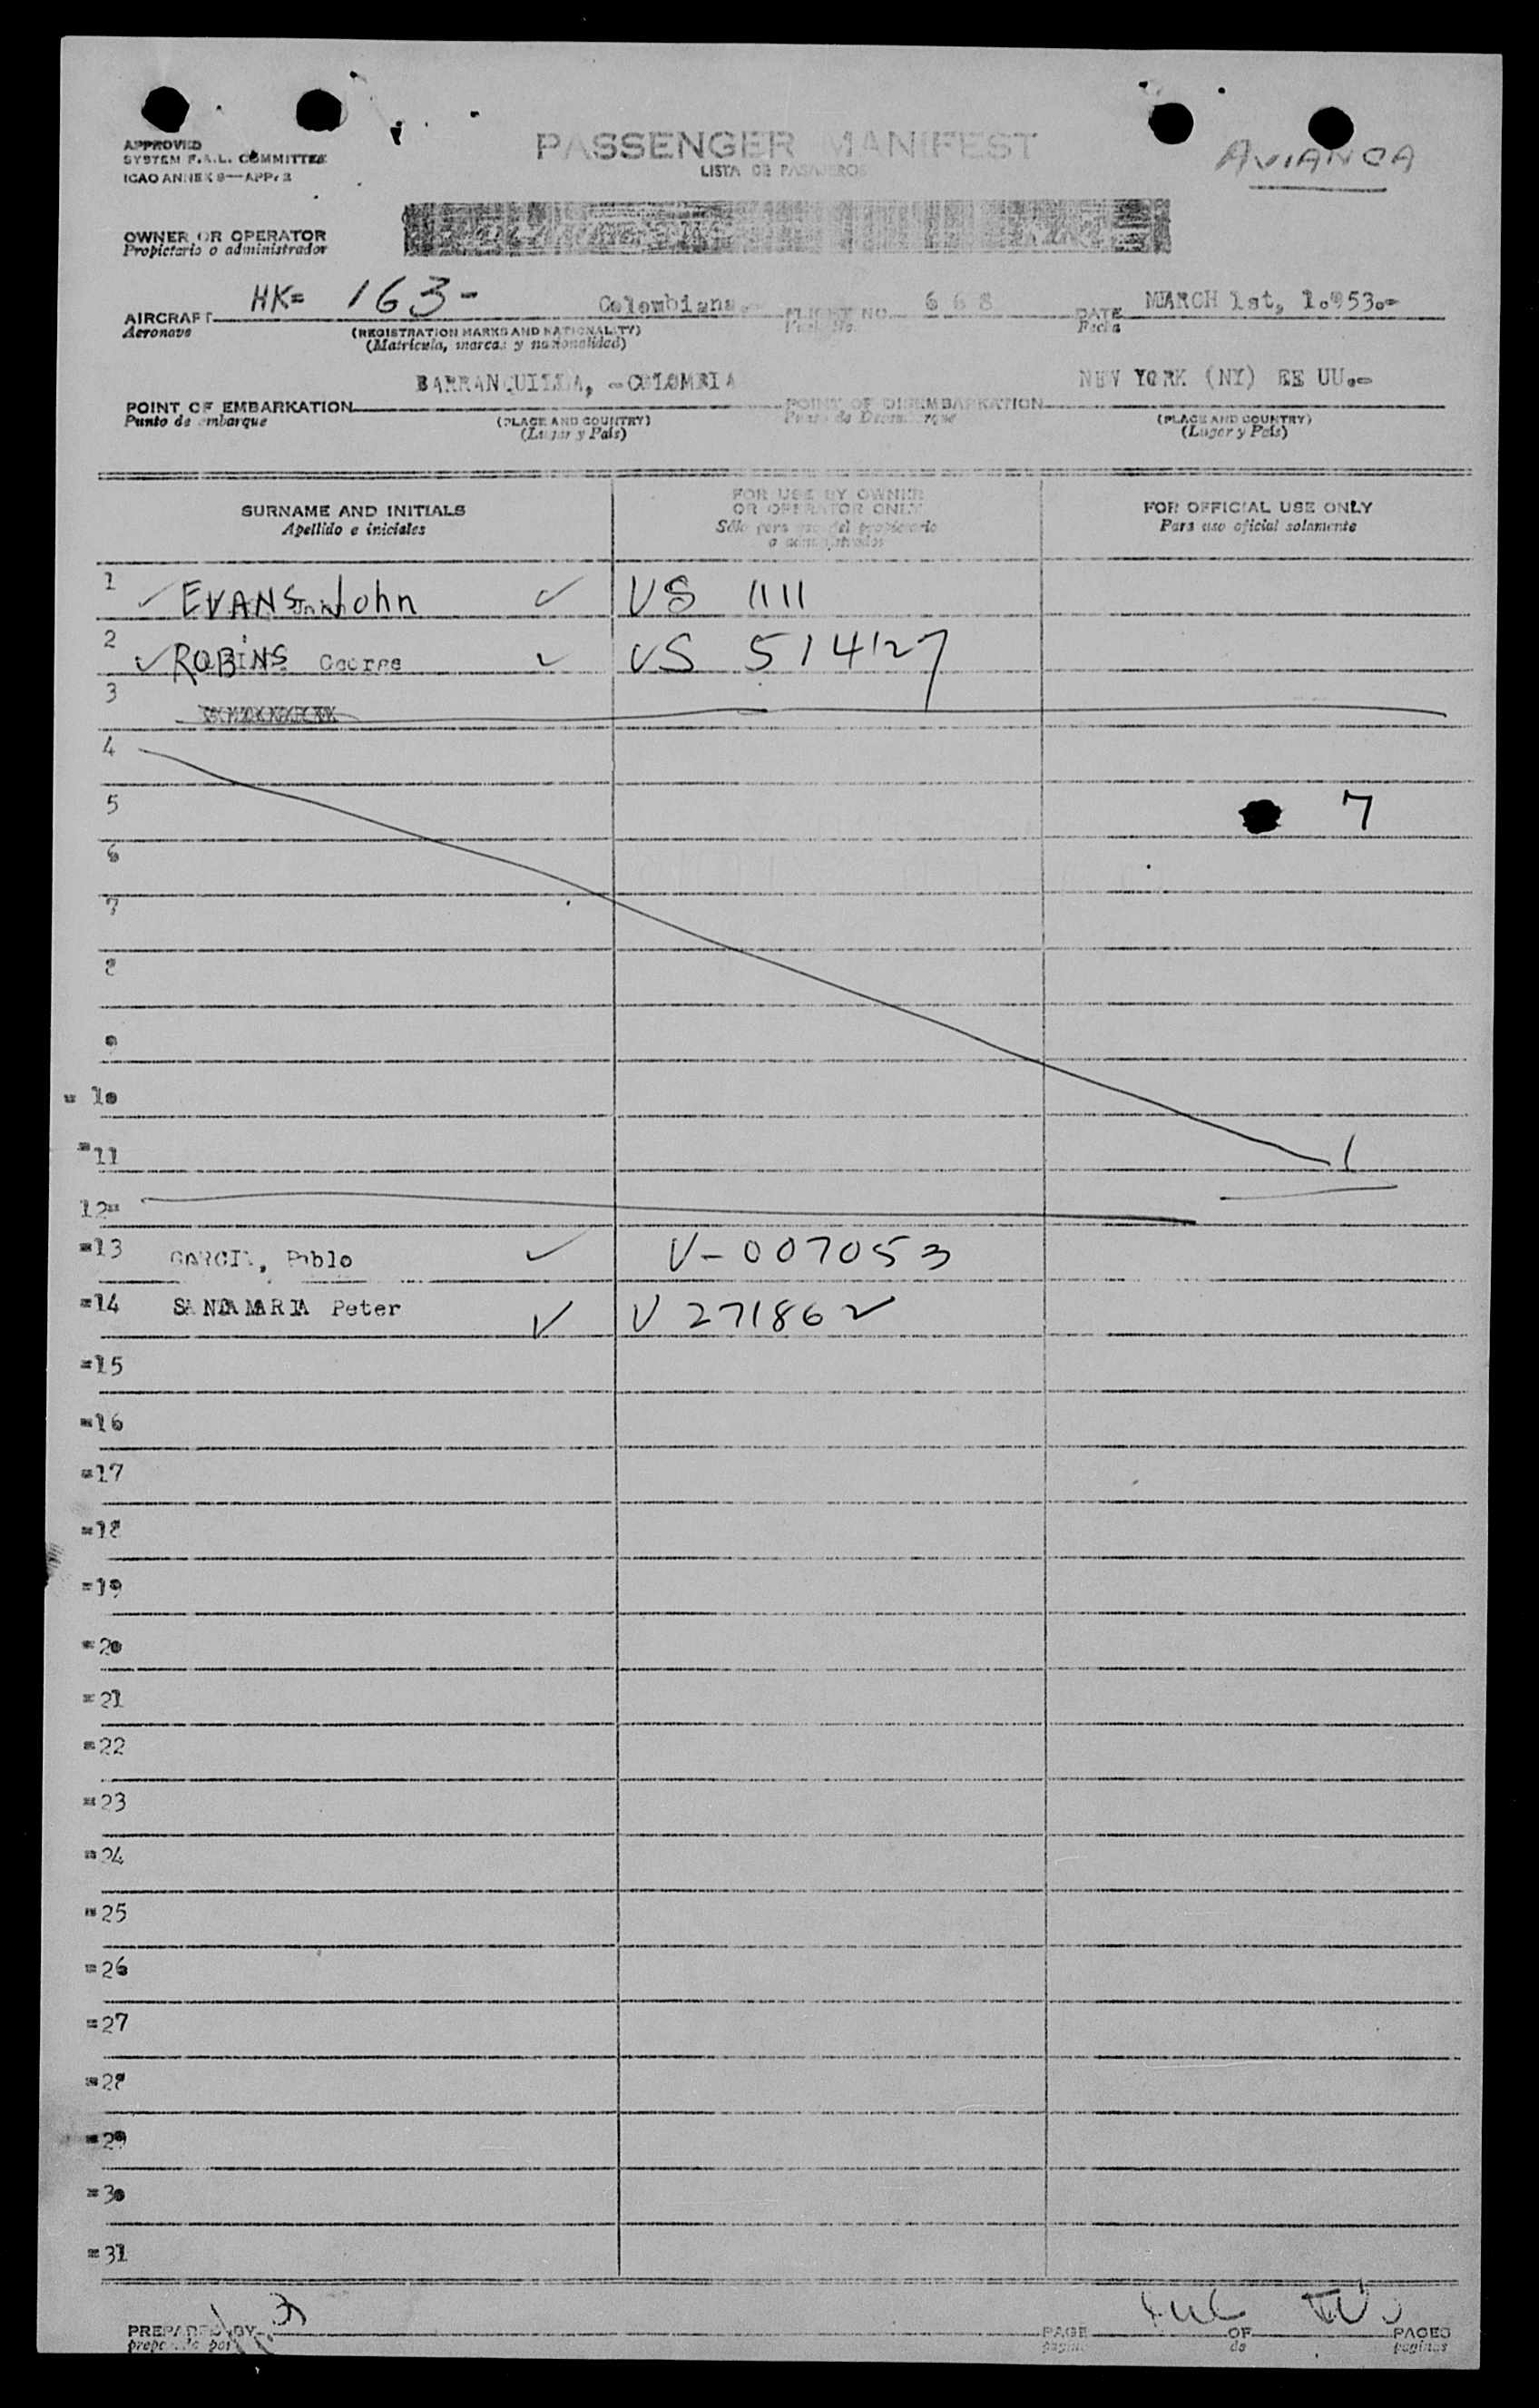 APPROVED
SYSTEM F.A.L. COMMITTEE
ICAO ANNEX 9—APP. 2
PASSENGER MANIFEST
LISTA DE PASAJEROS
AVIANCA
OWNER OR OPERATOR
Propietario o administrador
AIRCRAFT HK= 163- Colombiana.- FLIGHT NO. 668 DATE MARCH 1st, 1.953.-
Aeronave (REGISTRATION MARKS AND NATIONALITY) Fecha
(Matrícula, marcas y nacionalidad)
BARRANQUILLA, -COLOMBIA NEW YORK (NY) EE UU.-
POINT OF EMBARKATION POINT OF DISEMBARKATION
Punto de embarque (PLACE AND COUNTRY) (PLACE AND COUNTRY)
(Lugar y País) (Lugar y País)
SURNAME AND INITIALS FOR USE BY OWNER OR OPERATOR ONLY FOR OFFICIAL USE ONLY
Apellido e iniciales Sólo para uso del propietario o administrador Para uso oficial solamente
1 EVANS John US 1111
2 ROBINS George US 514127
3
4
5 7
6
7
8
9
10
11 1
12
13 GARCIA, Pablo V-007053
14 SANTAMARIA Peter V 271862
=15
=16
=17
=18
=19
=20
=21
=22
=23
=24
=25
=26
=27
=28
=29
=30
=31
PREPARED BY PAGE OF PAGES
preparado por página de páginas